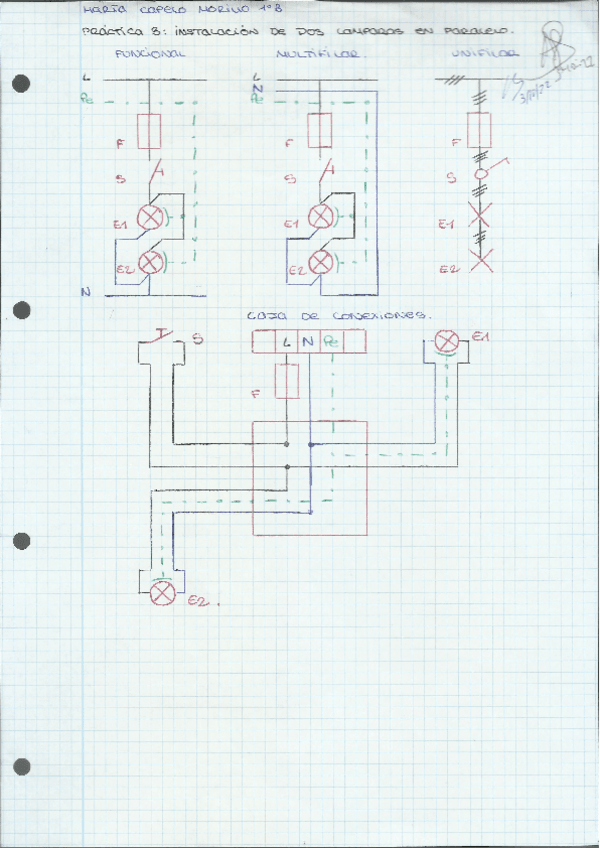 MARTA CAPELO MORILLO 1ºB
PRÁCTICA 8: INSTALACIÓN DE DOS LAMPARAS EN PARALELO.
FUNCIONAL MULTIFILAR. UNIFILAR
L L
Pe N
Pe
F F F
S S S
E1 E1 E1
E2 E2 E2
N
CAJA DE CONEXIONES.
S L N Pe E1
F
E2.